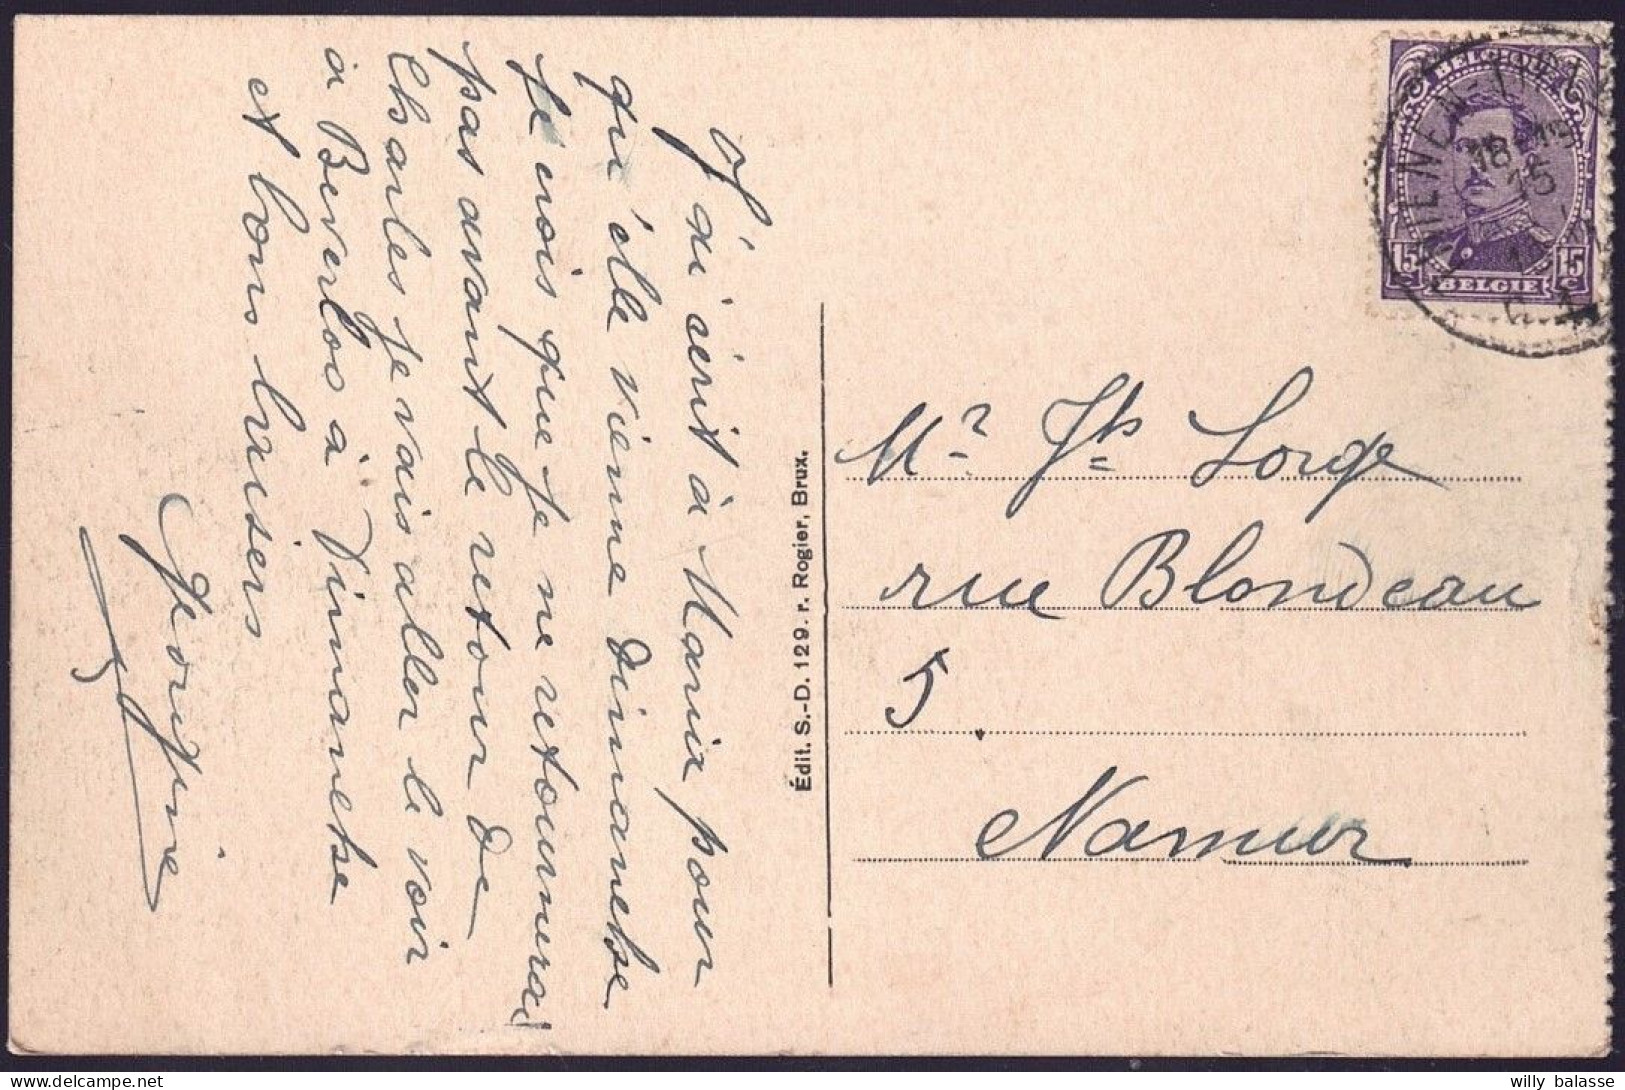 J'ai écrit à Maria pour
qu'elle vienne dimanche.
Je crois que je ne retournerai
pas avant le retour de
Charles je vais aller le voir
à Beverloo à Dimanche
et bons baisers
Georgine
Édit. S.-D. 129. r. Rogier, Brux.
BELGIQUE
15 C 15 C
BELGIE
TIENEN-TIRL
18-19
15
Mr Jh Lorge
rue Blondeau
5.
Namur
willy balasse